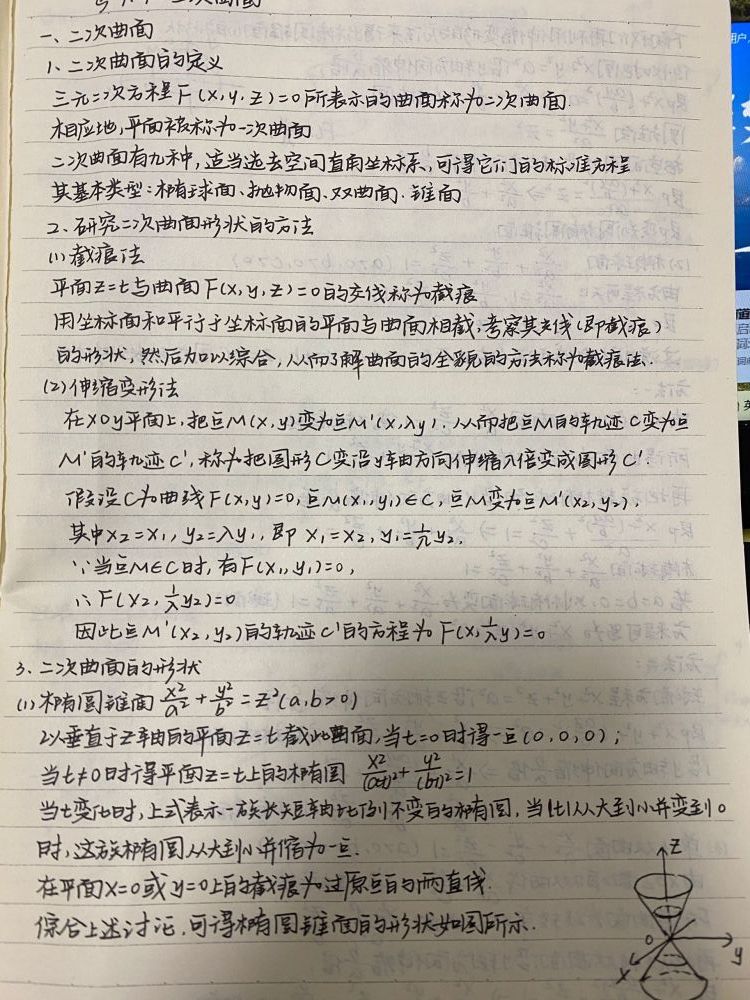 一、二次曲面
1、二次曲面的定义
三元二次方程F(x,y,z)=0所表示的曲面称为二次曲面.
相应地,平面被称为一次曲面
二次曲面有九种,适当选去空间直角坐标系,可得它们的标准方程
其基本类型:椭球面、抛物面、双曲面、锥面
2、研究二次曲面形状的方法
(1)截痕法
平面z=t与曲面F(x,y,z)=0的交线称为截痕
用坐标面和平行于坐标面的平面与曲面相截,考察其交线(即截痕)
的形状,然后加以综合,从而了解曲面的全貌的方法称为截痕法.
(2)伸缩变形法
在xoy平面上,把点M(x,y)变为点M'(x,λy).从而把点M的轨迹C变为点
M'的轨迹C',称为把图形C变沿y轴方向伸缩λ倍变成图形C'.
假设C为曲线F(x,y)=0,点M(x₁,y₁)∈C,点M变为点M'(x₂,y₂),
其中x₂=x₁,y₂=λy₁,即 x₁=x₂,y₁=1/λ y₂,
∵当点M∈C时,有F(x₁,y₁)=0,
∴F(x₂,1/λ y₂)=0
因此点M'(x₂,y₂)的轨迹C'的方程为F(x,1/λ y)=0
3、二次曲面的形状
(1)椭圆锥面 x²/a²+y²/b²=z²(a,b>0)
以垂直于z轴的平面z=t截此曲面,当t=0时得一点(0,0,0);
当t≠0时得平面z=t上的椭圆 x²/(at)²+y²/(bt)²=1
当t变化时,上式表示一族长短轴比例不变的椭圆,当|t|从大到小并变到0
时,这族椭圆从大到小并缩为一点.
在平面x=0或y=0上的截痕为过原点的两直线.
综合上述讨论,可得椭圆锥面的形状如图所示.
z
o
y
x